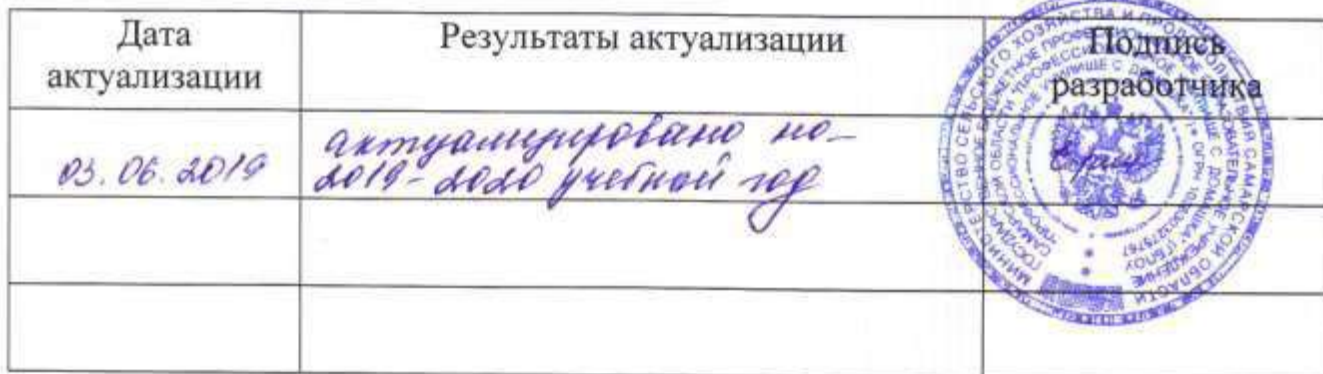 Дата
актуализации
Результаты актуализации
Подпись
разработчика
03.06.2019
актуализировано на
2019-2020 учебный год
МИНИСТЕРСТВО СЕЛЬСКОГО ХОЗЯЙСТВА И ПРОДОВОЛЬСТВИЯ САМАРСКОЙ ОБЛАСТИ